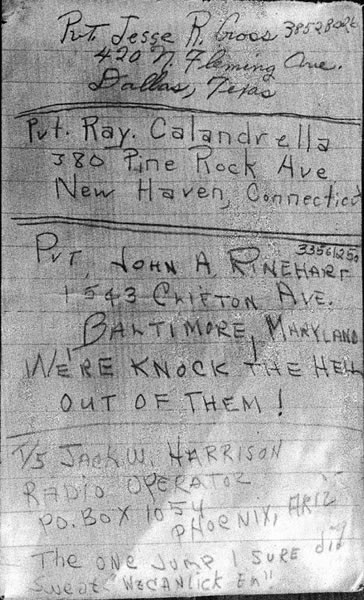 Pvt. Jesse R. Cross
420 N. Fleming Ave.
Dallas, Texas
Pvt. Ray. Calandrella
380 Pine Rock Ave
New Haven, Connecticut
33561250
Pvt, JOHN A. RINEHART
1543 CLIFTON AVE.
BALTIMORE, MARYLAND
WE'RE KNOCK THE HELL
OUT OF THEM!
T/5 JACK W. HARRISON
RADIO OPERATOR
P.O. BOX 1054
PHOENIX, ARIZ
The one Jump I SURE did
Sweat "WE CAN lick Em"